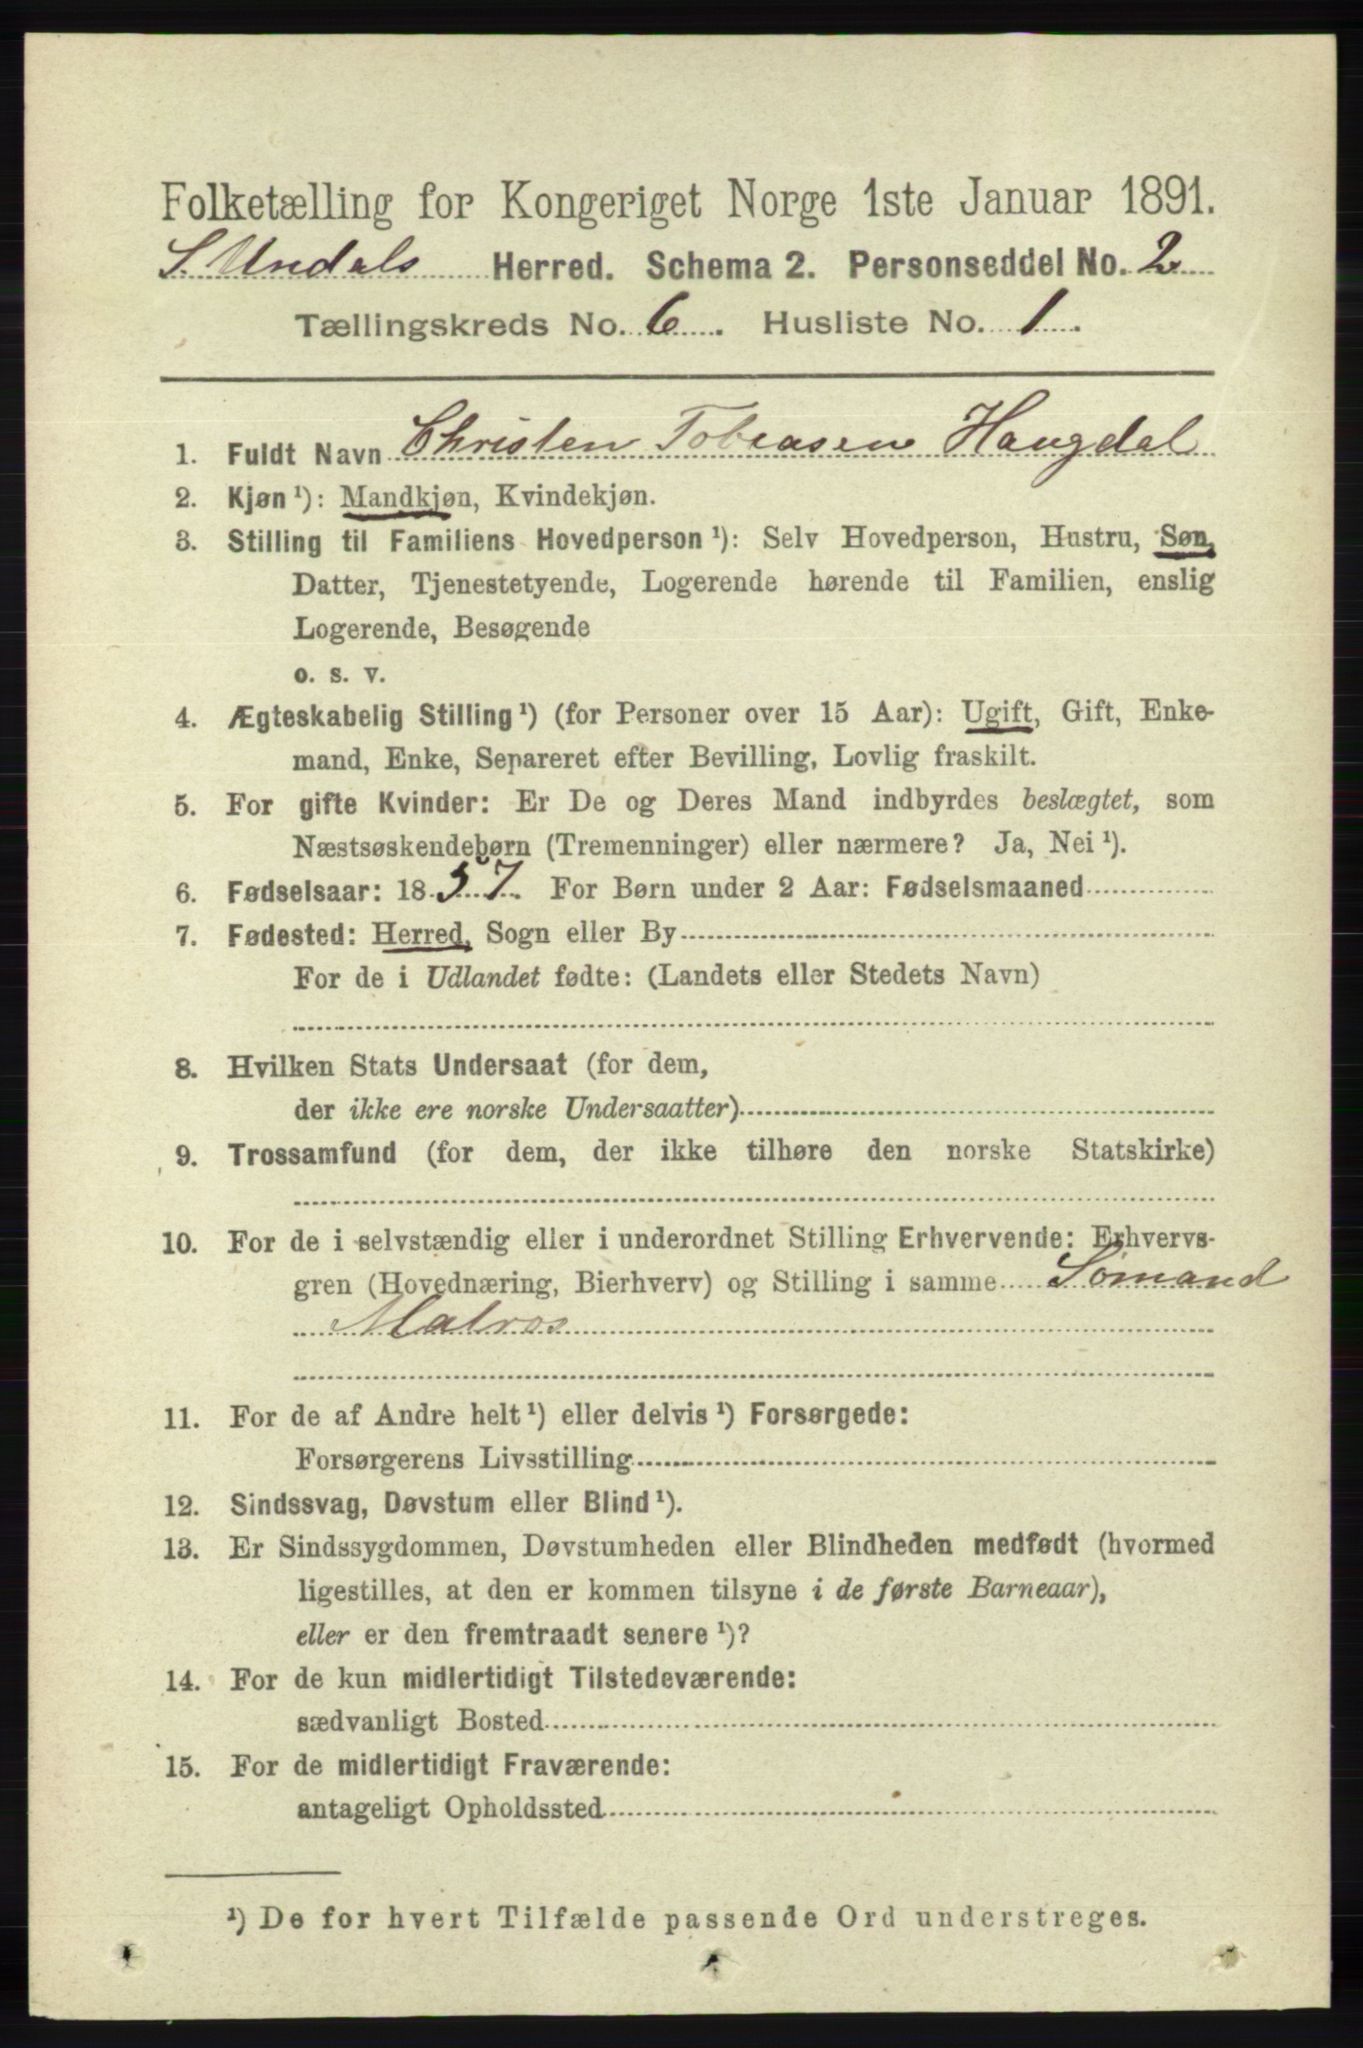 Folketælling for Kongeriget Norge 1ste Januar 1891.
S. Undals Herred. Schema 2. Personseddel No. 2
Tællingskreds No. 6. Husliste No. 1.
1. Fuldt Navn Christen Tobiasen Haugdal
2. Kjøn¹): Mandkjøn, Kvindekjøn.
3. Stilling til Familiens Hovedperson¹): Selv Hovedperson, Hustru, Søn,
Datter, Tjenestetyende, Logerende hørende til Familien, enslig
Logerende, Besøgende
o. s. v.
4. Ægteskabelig Stilling¹) (for Personer over 15 Aar): Ugift, Gift, Enke-
mand, Enke, Separeret efter Bevilling, Lovlig fraskilt.
5. For gifte Kvinder: Er De og Deres Mand indbyrdes beslægtet, som
Næstsøskendebørn (Tremenninger) eller nærmere? Ja, Nei¹).
6. Fødselsaar: 1857. For Børn under 2 Aar: Fødselsmaaned
7. Fødested: Herred, Sogn eller By
For de i Udlandet fødte: (Landets eller Stedets Navn)
8. Hvilken Stats Undersaat (for dem,
der ikke ere norske Undersaatter)
9. Trossamfund (for dem, der ikke tilhøre den norske Statskirke)
10. For de i selvstændig eller i underordnet Stilling Erhvervende: Erhvervs-
gren (Hovednæring, Bierhverv) og Stilling i samme Sømand
Matros
11. For de af Andre helt¹) eller delvis¹) Forsørgede:
Forsørgerens Livsstilling
12. Sindssvag, Døvstum eller Blind¹).
13. Er Sindssygdommen, Døvstumheden eller Blindheden medfødt (hvormed
ligestilles, at den er kommen tilsyne i de første Barneaar),
eller er den fremtraadt senere¹)?
14. For de kun midlertidigt Tilstedeværende:
sædvanligt Bosted
15. For de midlertidigt Fraværende:
antageligt Opholdssted
¹) De for hvert Tilfælde passende Ord understreges.